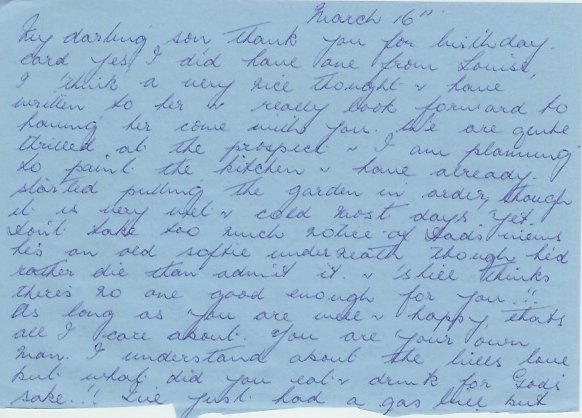 March 16"
My darling son thank you for birthday
card yes I did have one from Louise,
I think a very nice thought & have
written to her & really look forward to
having her come with you. We are quite
thrilled at the prospect & I am planning
to paint the kitchen & have already
started putting the garden in order, though
it is very wet & cold most days, yet.
Don't take too much notice of Dads views
he's an old softie underneath though he'd
rather die than admit it. & still thinks
theres no one good enough for you.!!
As long as you are well & happy, thats
all I care about. You are your own
man. I understand about the love
but what did you eat & drink for Gods
sake.!! Ive just had a gas but